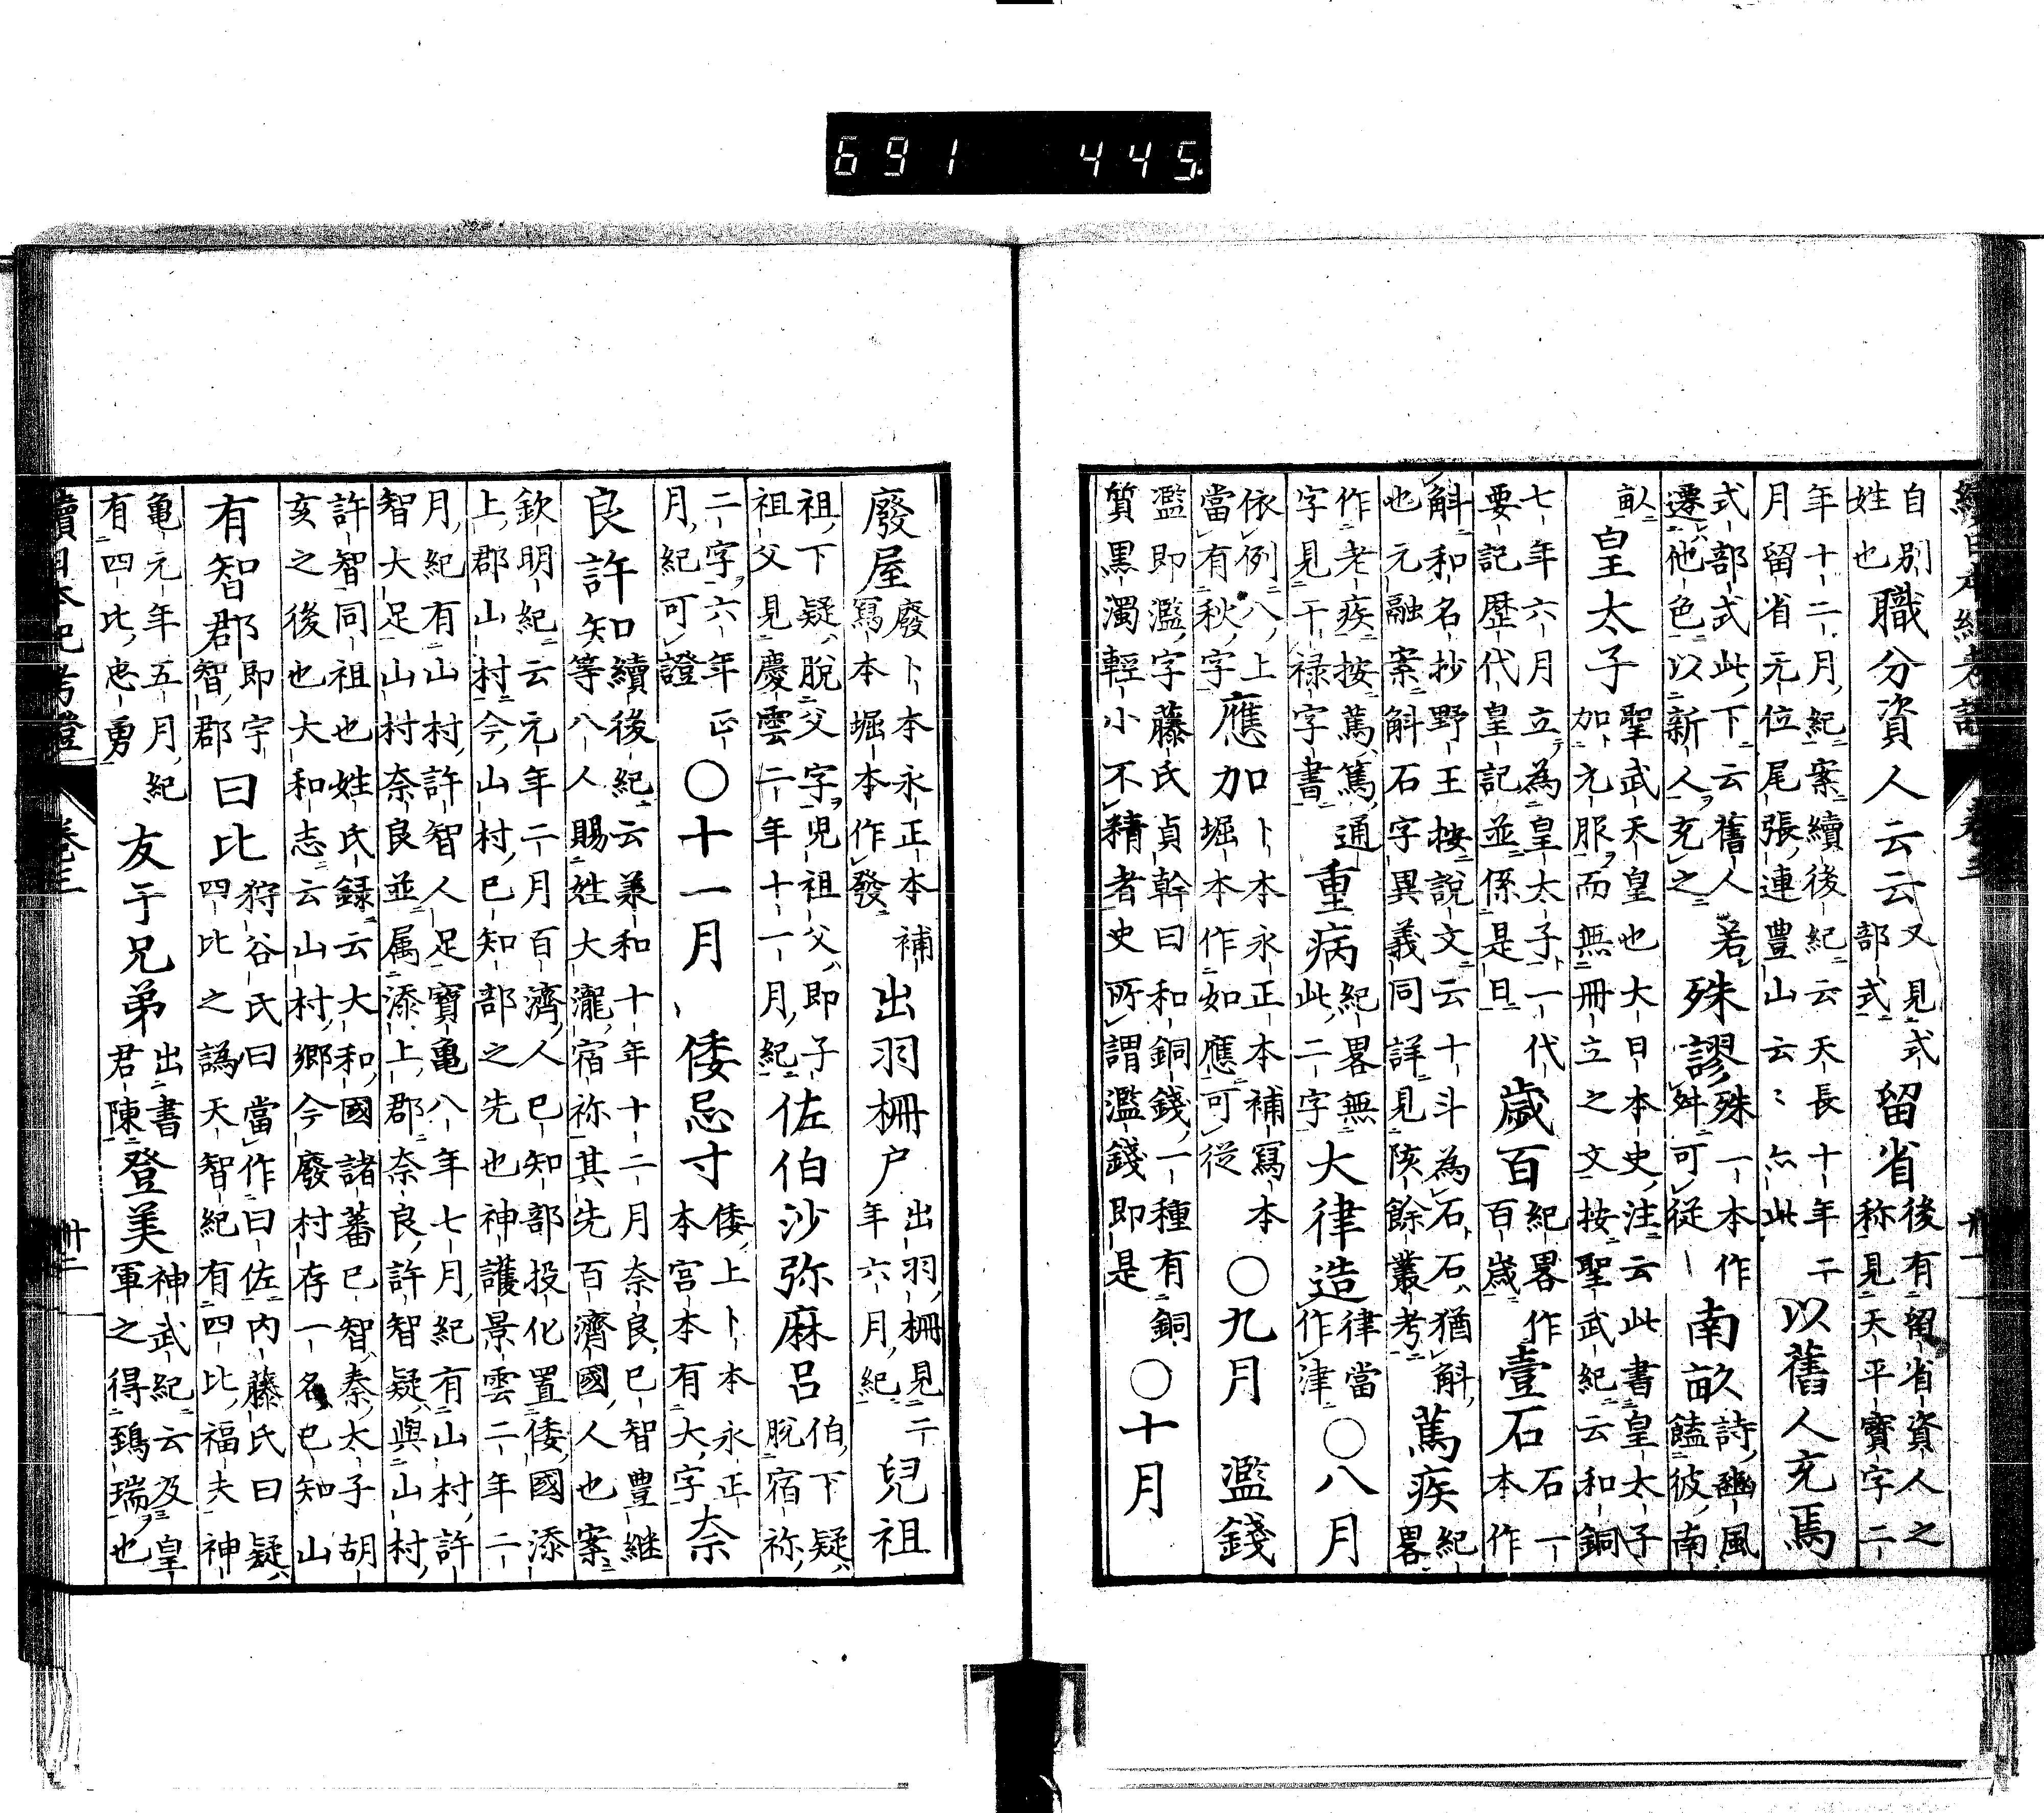 續日本紀考證 卷三 卅一
自別姓也職分資人云云又見式部式留省後有留省資人之称見天平寶字二
年十二月紀案續後紀云天長十年二月留省元位尾張連豊山云〻亦此以舊人充焉
式部式式此下云舊人若遷他色以新人充之殊謬殊一本作舛可從南畝詩豳風饁彼南
畝皇太子聖武天皇也大日本史注云此書皇太子加元服而無冊立之文按聖武紀云和銅
七年六月立為皇太子一代要記歴代皇記並係是日歳百紀畧作百歳壹石石一本作
斛和名抄野王按説文云十斗為石石猶斛也元融案斛石字異義同詳見陔餘叢考篤疾紀畧
作老疾按篤篤通字見干禄字書重病紀畧無此二字大律造律當作津○八月
依例八上當有秋字應加卜本永正本補寫本堀本作如應可從○九月 濫錢
濫即濫字藤氏貞幹曰和銅錢一種有銅質黒濁輕小不精者史所謂濫錢即是○十月
廢屋廢卜本永正本補寫本堀本作發出羽柵戸出羽柵見二年六月紀兒祖
祖下疑脱父字児祖父即子祖父見慶雲二年十一月紀佐伯沙弥麻呂伯下疑脱宿祢
二字六年正月紀可證○十一月、倭忌寸倭上卜本永正本宮本有大字奈
良許知奈良已智豊継等八人賜姓大瀧宿祢其先百濟國人也案
欽明紀云元年二月百濟人已知部投化置倭國添上郡山村今山村已知部之先也神護景雲二年二
月紀有山村許智人足寶亀八年七月紀有山村許智大足山村奈良並属添上郡奈良許智疑與山村
許智同祖也姓氏録云大和國諸蕃已智秦太子胡亥之後也大和志云山村郷今廢村存一名已知山
有智郡即宇智郡曰比狩谷氏曰當作曰佐内藤氏曰疑四比之譌天智紀有四比福夫神
亀元年五月紀有四比忠勇友于兄弟出書君陳登美神武紀云及皇軍之得鵄瑞也
續日本紀考證 卷三 卅二